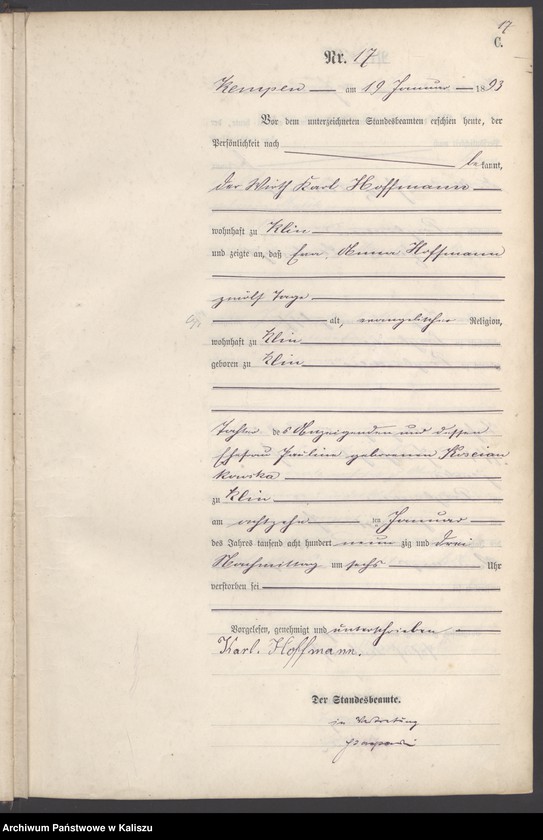 17
C.
Nr. 17
Kempen am 19 Januar 1893
Vor dem unterzeichneten Standesbeamten erschien heute, der
Persönlichkeit nach
bekannt,
der Wirth Karl Hoffmann
wohnhaft zu Klin
und zeigte an, daß Eva Anna Hoffmann
zwölf Tage
alt, evangelischer Religion,
wohnhaft zu Klin
geboren zu Klin
Tochter des Anzeigenden und dessen
Ehefrau Pauline geborenen Koscian
kowska
zu Klin
am achtzehn ten Januar
des Jahres tausend acht hundert neun zig und drei
Nachmittag um sechs Uhr
verstorben sei
Vorgelesen, genehmigt und unterschrieben
Karl. Hoffmann.
Der Standesbeamte.
in Vertretung
Archiwum Państwowe w Kaliszu